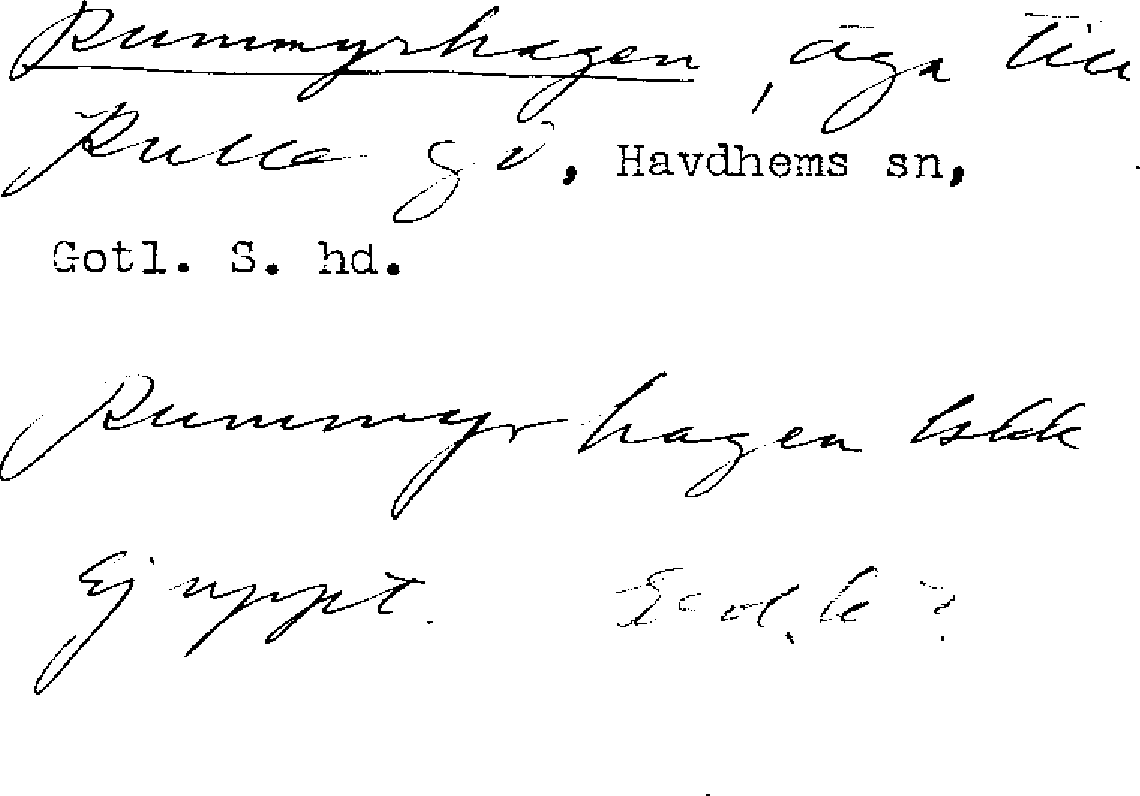 Rummyrhagen, äga till
Rulla gd, Havdhems sn,
Gotl. S. hd.
Rummyrhagen lskk
Ej uppt.